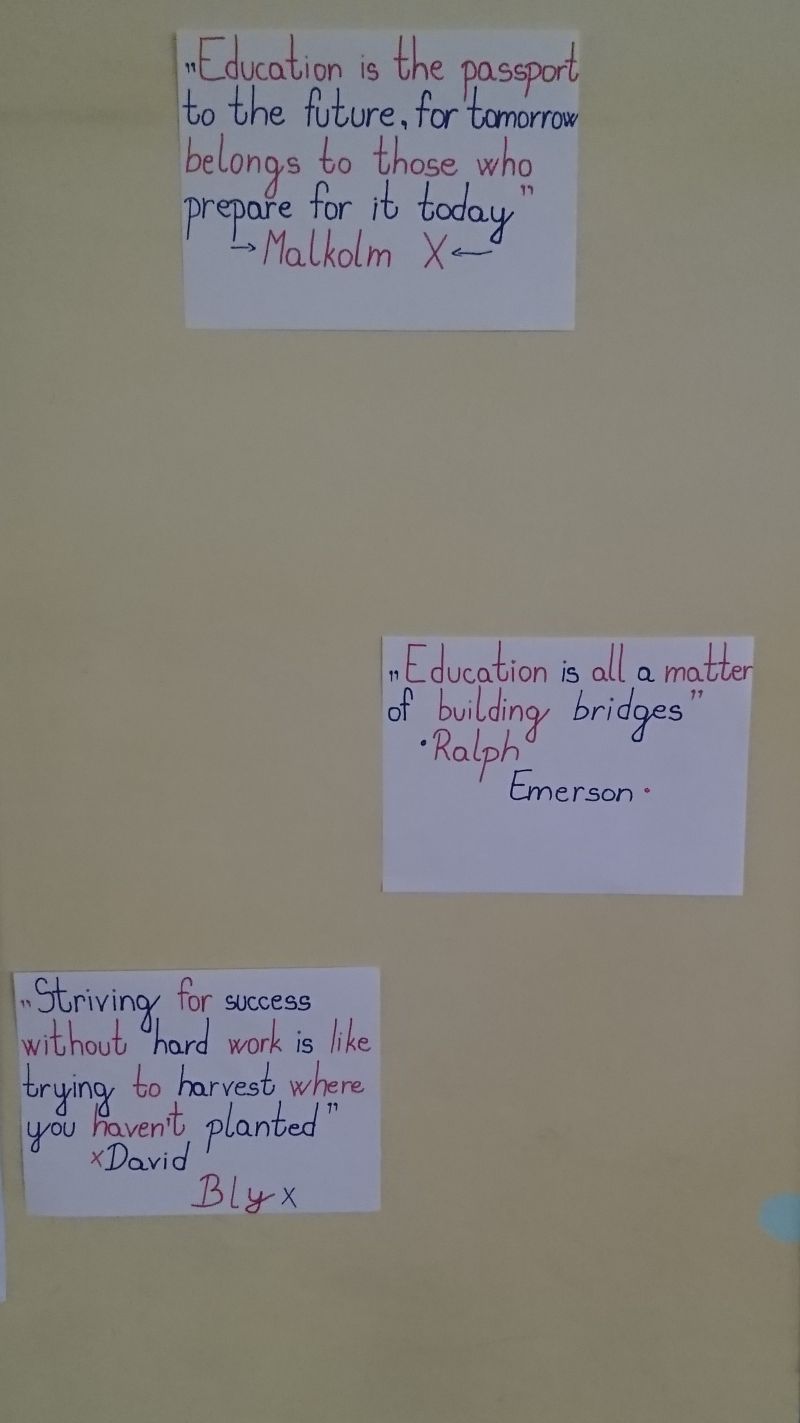 „Education is the passport
to the future, for tomorrow
belongs to those who
prepare for it today”
→Malkolm X←
„Education is all a matter
of building bridges”
•Ralph
Emerson•
„Striving for success
without hard work is like
trying to harvest where
you haven't planted”
xDavid
Bly x